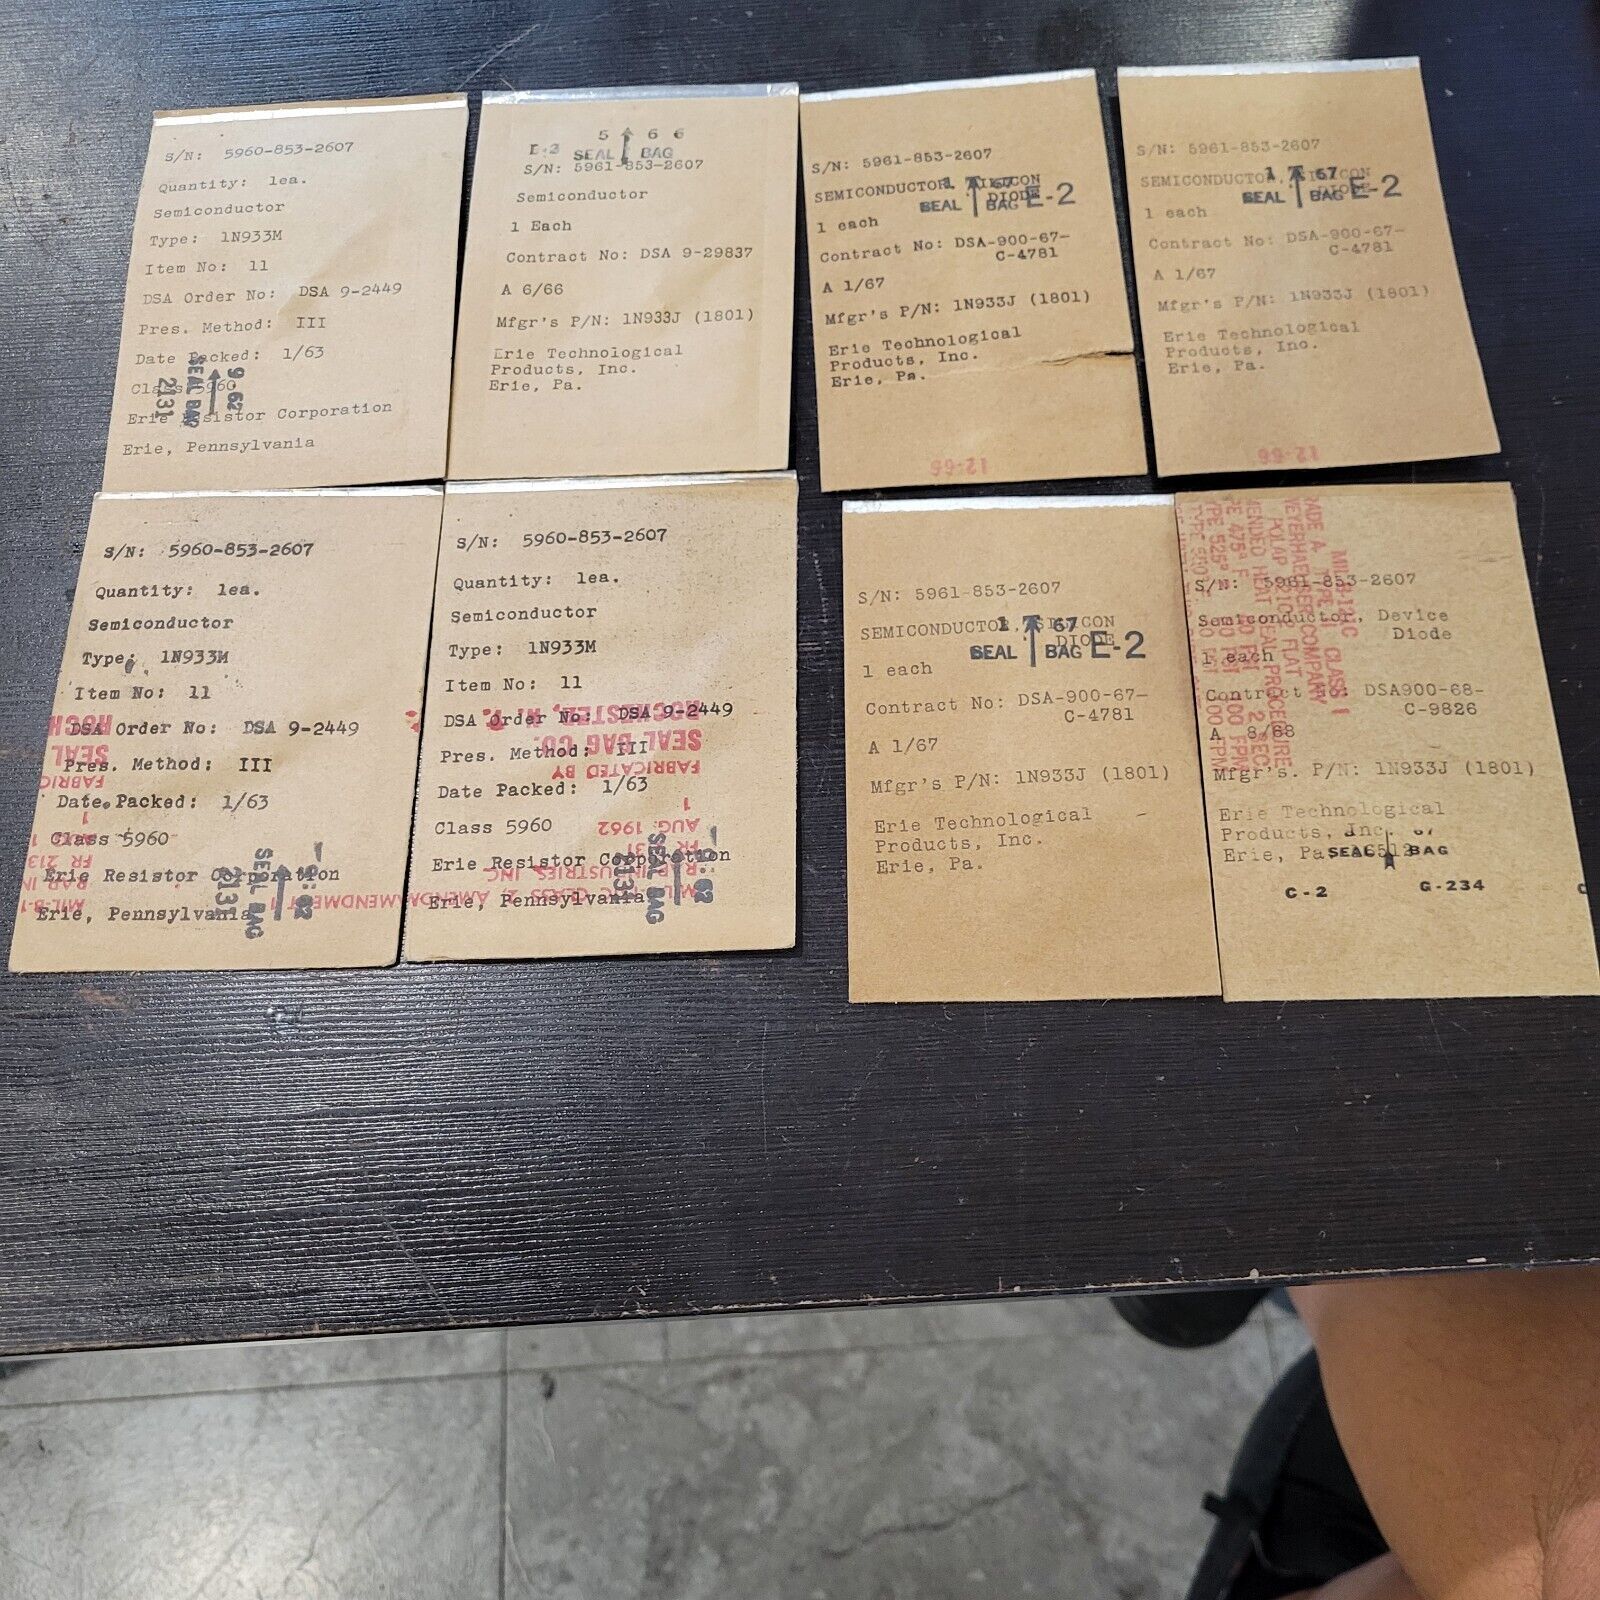 S/N: 5960-853-2607
Quantity: 1ea.
Semiconductor
Type: 1N933M
Item No: 11
DSA Order No: DSA 9-2449
Pres. Method: III
Date Packed: 1/63
Class 5960
Erie Resistor Corporation
Erie, Pennsylvania
SEAL BAG
2131
9 62
5 6 6
SEAL BAG
S/N: 5961-853-2607
Semiconductor
1 Each
Contract No: DSA 9-29837
A 6/66
Mfgr's P/N: 1N933J (1801)
Erie Technological
Products, Inc.
Erie, Pa.
S/N: 5961-853-2607
SEMICONDUCTOR, SILICON
DIODE
1 67
SEAL BAG E-2
1 each
Contract No: DSA-900-67-
C-4781
A 1/67
Mfgr's P/N: 1N933J (1801)
Erie Technological
Products, Inc.
Erie, Pa.
12-66
S/N: 5961-853-2607
SEMICONDUCTOR, SILICON
DIODE
1 67
SEAL BAG E-2
1 each
Contract No: DSA-900-67-
C-4781
A 1/67
Mfgr's P/N: 1N933J (1801)
Erie Technological
Products, Inc.
Erie, Pa.
12-66
S/N: 5960-853-2607
Quantity: 1ea.
Semiconductor
Type: 1N933M
Item No: 11
DSA Order No: DSA 9-2449
Pres. Method: III
Date Packed: 1/63
Class 5960
Erie Resistor Corporation
Erie, Pennsylvania
SEAL BAG
2131
ROCH
SEAL
FABRIC
1
FR 213
MIL-B-1
S/N: 5960-853-2607
Quantity: 1ea.
Semiconductor
Type: 1N933M
Item No: 11
DSA Order No: DSA 9-2449
Pres. Method: III
Date Packed: 1/63
Class 5960
Erie Resistor Corporation
Erie, Pennsylvania
SEAL BAG
2131
CLASS 2, AMENDMENT 1
INDUSTRIES, INC.
AUG. 1962
1
FABRICATED BY
SEAL BAG CO.
ROCHESTER, N.Y.
S/N: 5961-853-2607
SEMICONDUCTOR, SILICON
DIODE
1 67
SEAL BAG E-2
1 each
Contract No: DSA-900-67-
C-4781
A 1/67
Mfgr's P/N: 1N933J (1801)
Erie Technological
Products, Inc.
Erie, Pa.
S/N: 5961-853-2607
Semiconductor, Device
Diode
1 each
Contract No: DSA900-68-
C-9826
A 8/68
Mfgr's. P/N: 1N933J (1801)
Erie Technological
Products, Inc.
Erie, Pa. 16512
SEAL BAG
C-2 G-234
CLASS 1
WEYERHAEUSER COMPANY
HEAT SEAL PROCEDURE